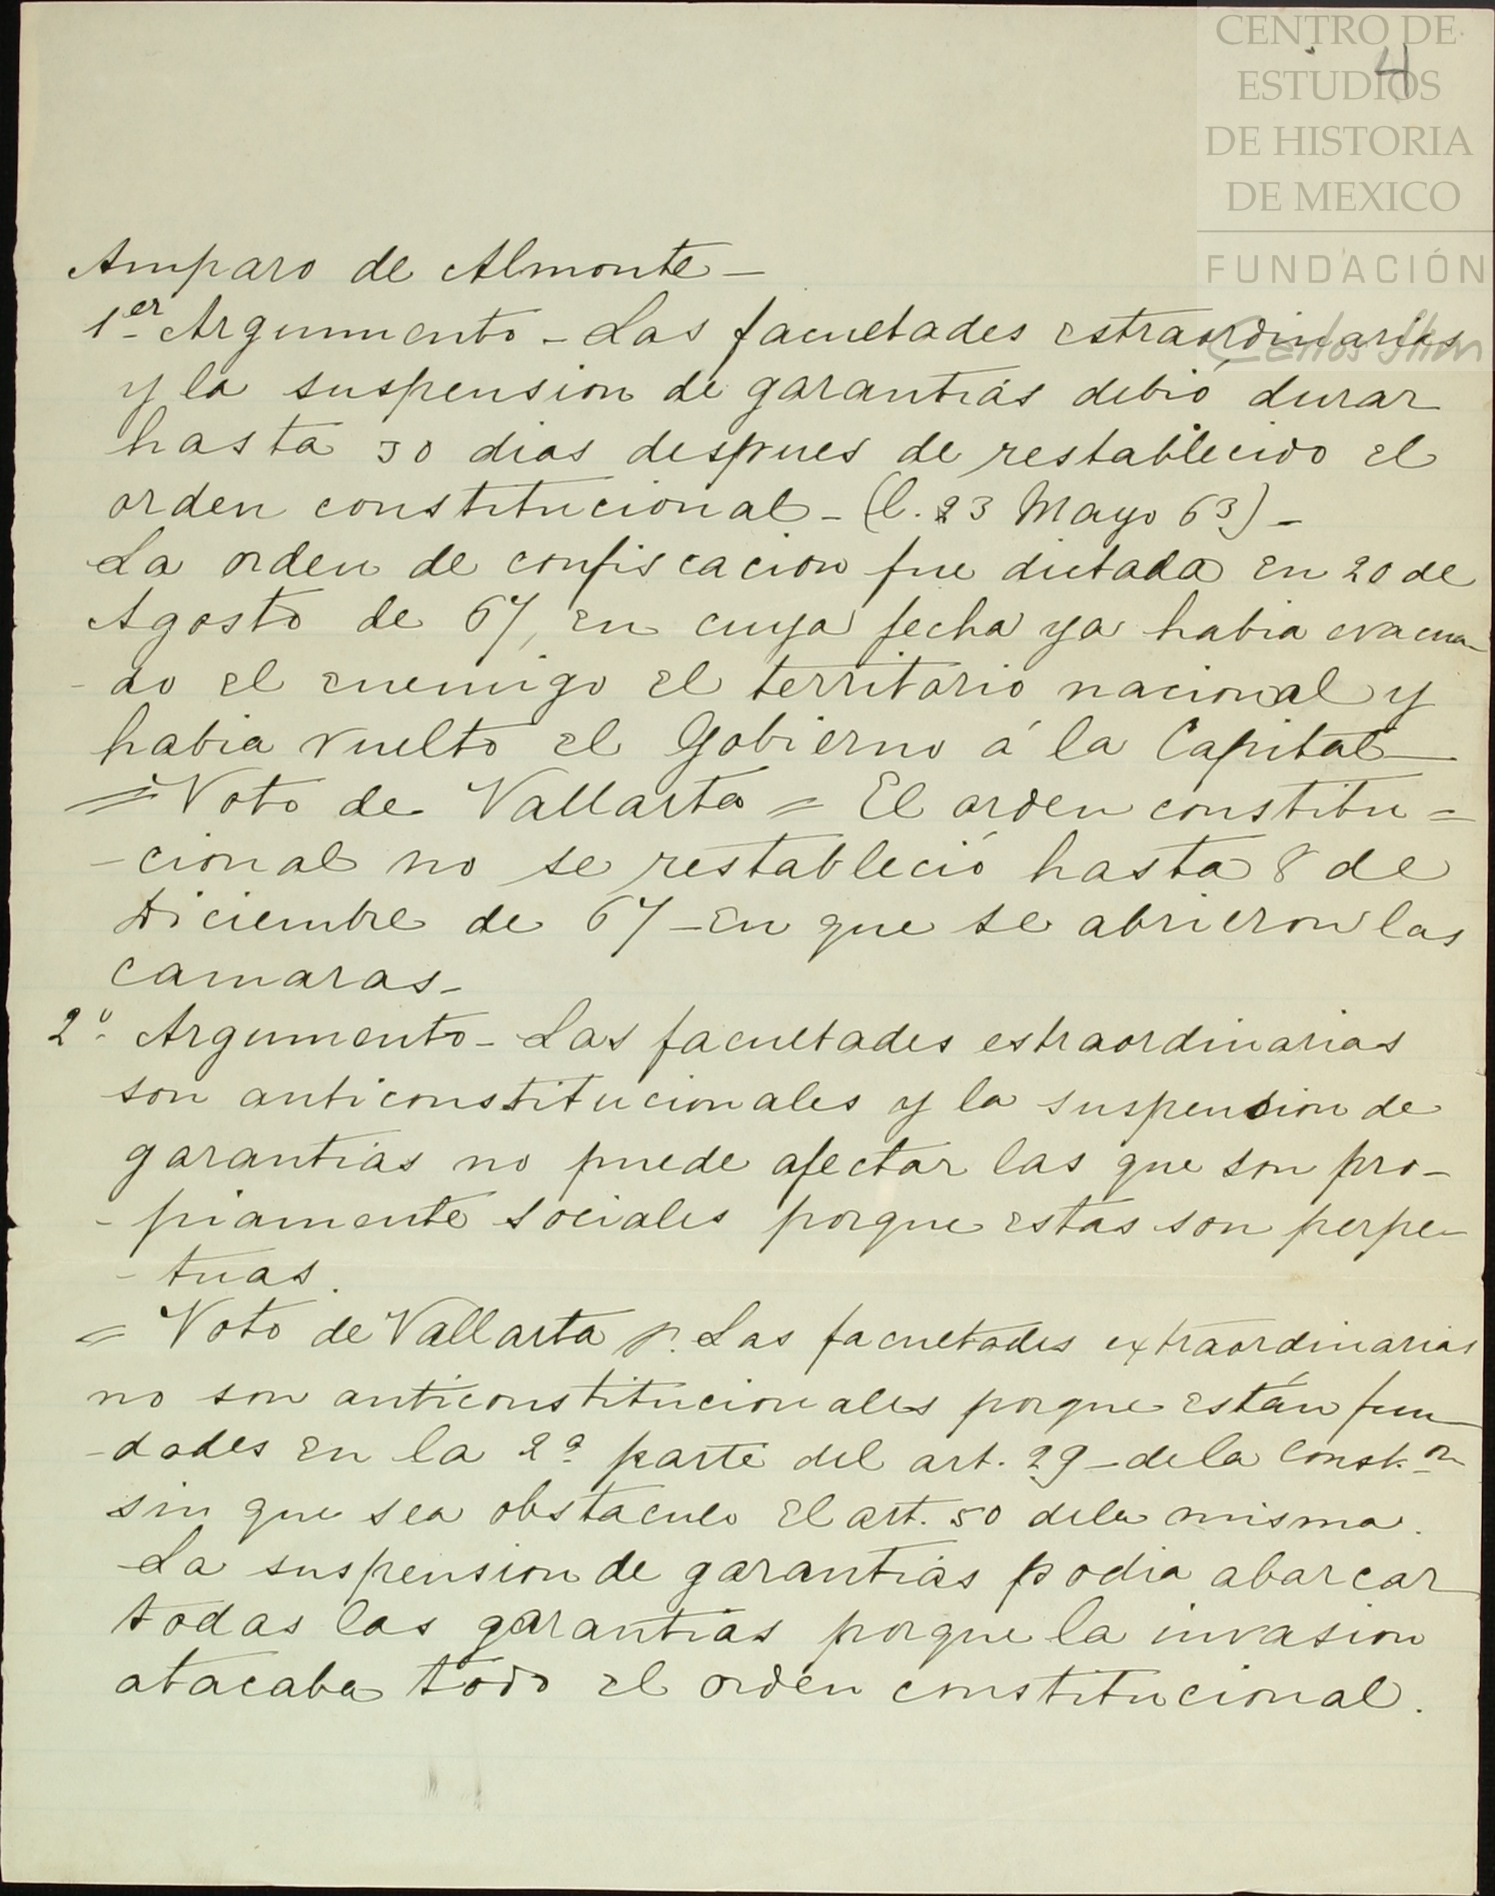 CENTRO DE
ESTUDIOS
DE HISTORIA
DE MEXICO
FUNDACIÓN
Carlos Slim
4
Amparo de Almonte -
1er Argumento - Las facultades estraordinarias
y la suspension de garantías debió durar
hasta 30 dias despues de restablecido el
orden constitucional - (l. 23 Mayo 63) -
La orden de confiscacion fue dictada en 20 de
Agosto de 67, en cuya fecha ya habia evacua
- do el enemigo el territorio nacional y
habia vuelto el Gobierno á la Capital -
= Voto de Vallarta = El orden constitu =
- cional no se restableció hasta 8 de
Diciembre de 67 - en que se abrieron las
camaras -
2º Argumento - Las facultades estraordinarias
son anticonstitucionales y la suspension de
garantías no puede afectar las que son pro-
- piamente sociales porque estas son perpe-
- tuas.
= Voto de Vallarta p. Las facultades extraordinarias
no son anticonstitucionales porque están fun
- dades en la 2ª parte del art. 29 - de la Const.on
sin que sea obstaculo el art. 50 dela misma.
La suspension de garantías podia abarcar
todas las garantías porque la invasion
atacaba todo el orden constitucional.